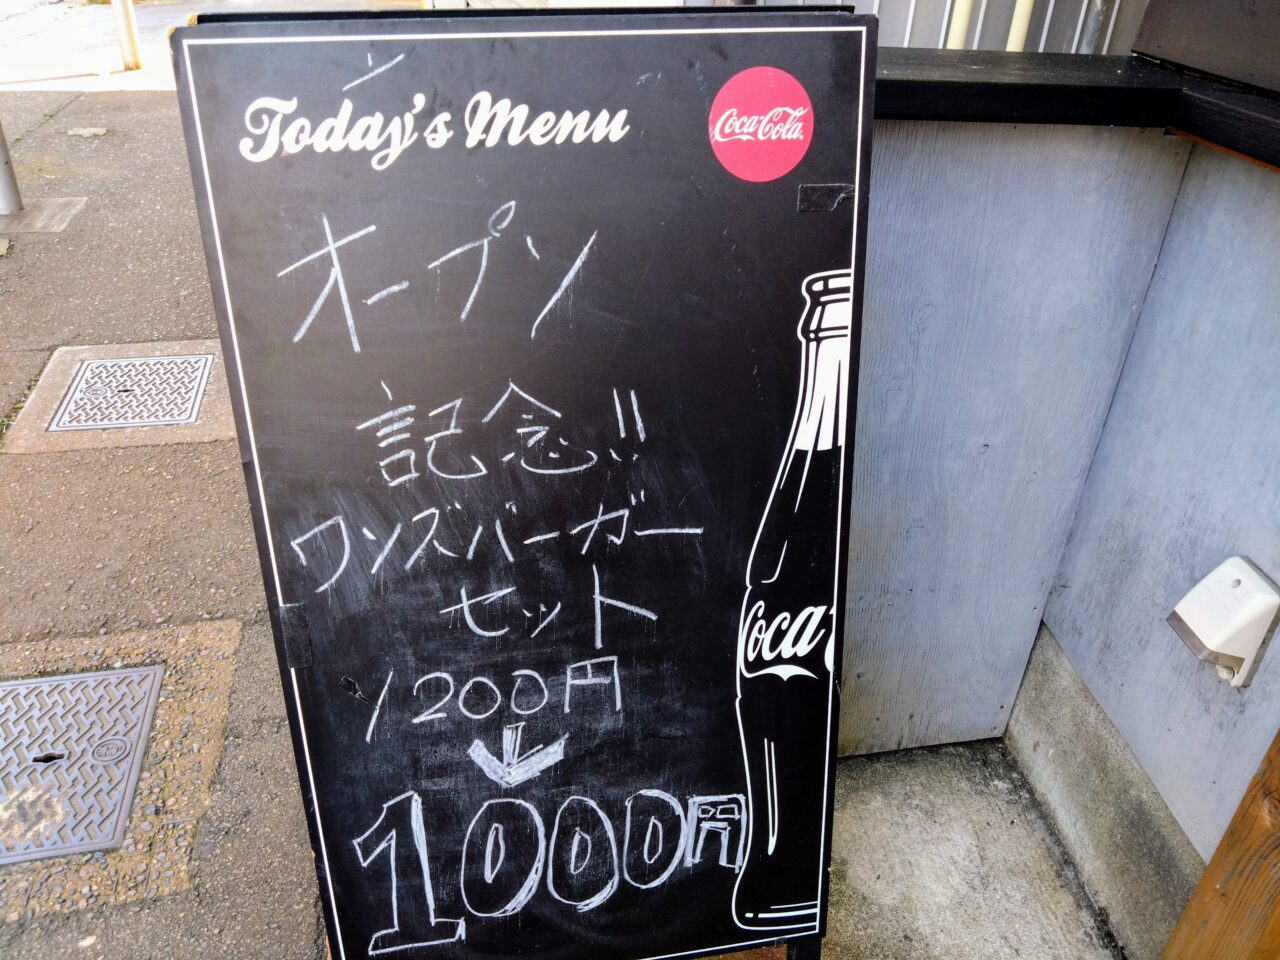 Today's Menu
Coca-Cola
オープン
記念!!
ワンズバーガー
セット
1200円
↓
1000円
Coca